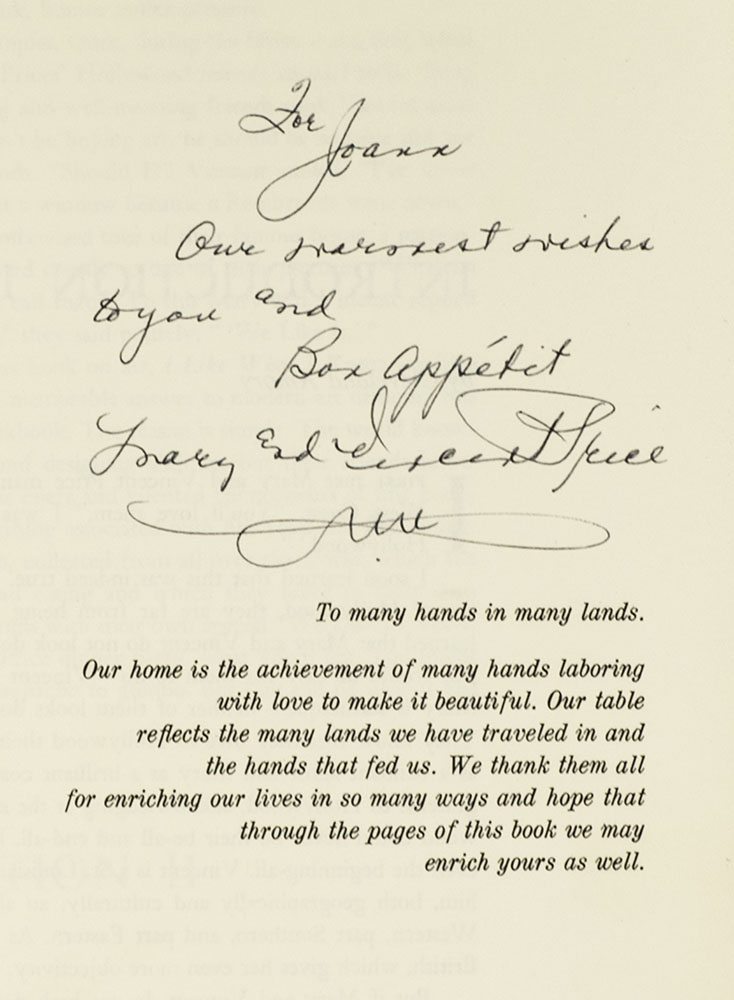 For
Joann
Our warmest wishes
to you and
Bon Appétit
Mary and Vincent Price
To many hands in many lands.
Our home is the achievement of many hands laboring
with love to make it beautiful. Our table
reflects the many lands we have traveled in and
the hands that fed us. We thank them all
for enriching our lives in so many ways and hope that
through the pages of this book we may
enrich yours as well.